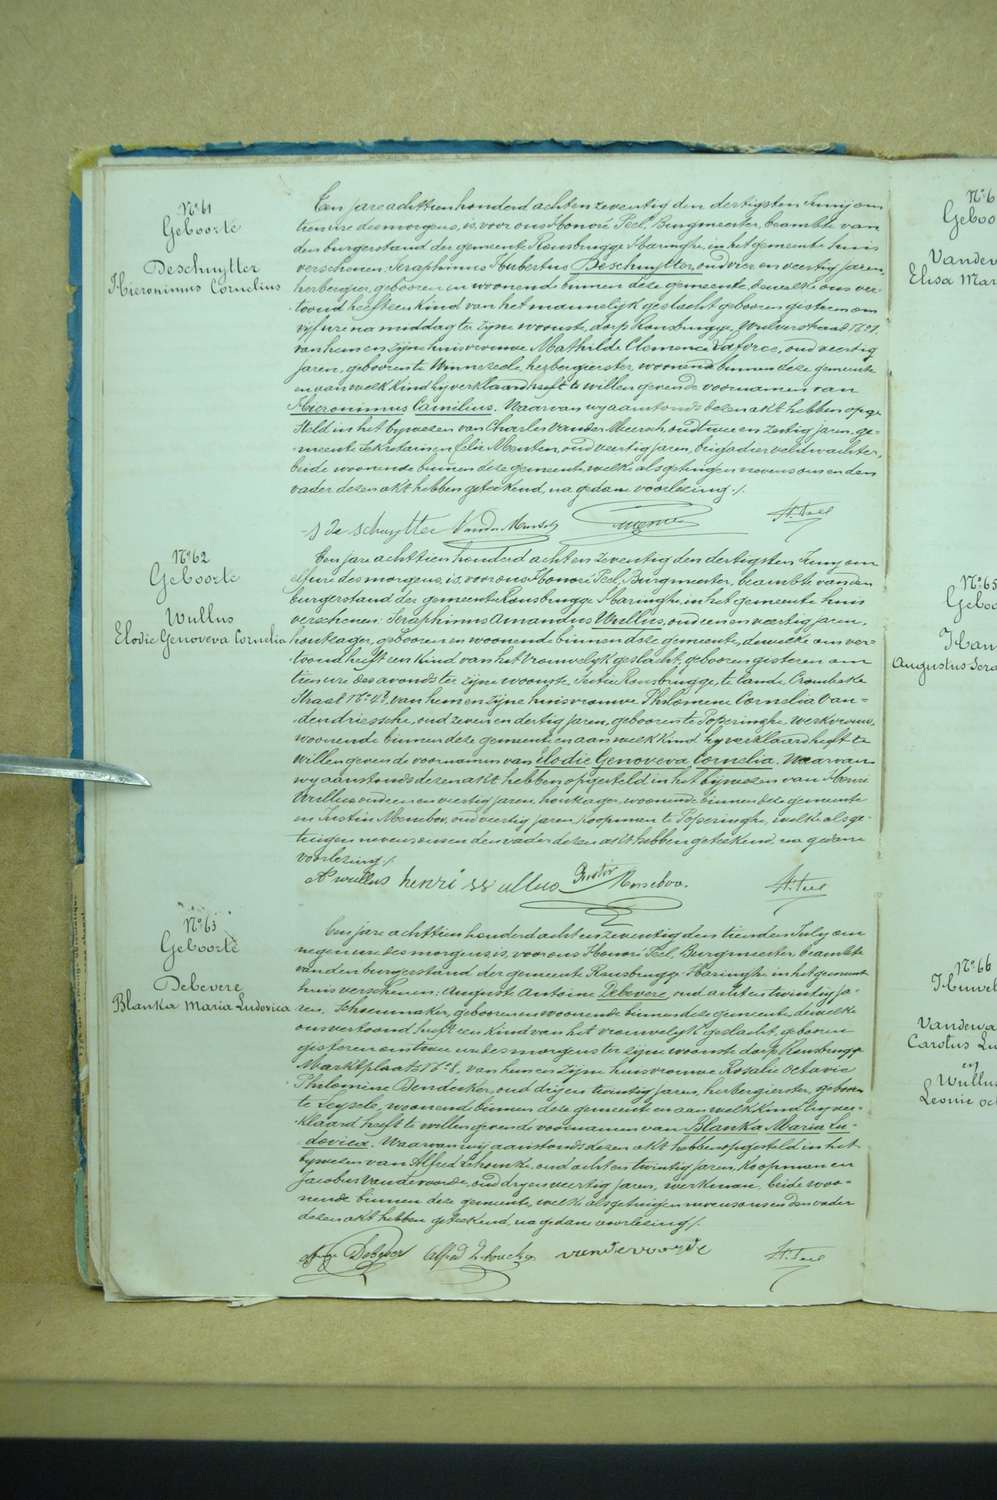 N° 61
Geboorte
Deschuytter
Hieronimus Cornelius
Een jare achttien honderd acht en zeventig den dertigsten Juny om
tien ure des morgens, is, voor ons Honoré Peel, Burgmeester, beambte van
den burgerstand der gemeente Rousbrugge Haringhe, in het gemeente huis
verschenen Seraphinus Hubertus Deschuytter, oud vier en veertig jaren,
herbergier, geboren en woonende binnen deze gemeente, dewelke ons ver-
toond heeft een kind van het mannelijk geslacht geboren gisteren om
vyf ure na middag ter zyne woonste, dorp Rousbrugge,
van hem en zyne huisvrouwe Mathilde Clemence Laforce, oud veertig
jaren, geboren te Winnezeele, herbergierster, woonende binnen deze gemeente
en aan welk kind hy verklaard heeft te willen geven de voornamen van
Hieronimus Camilius. Waarvan wy aanstonds dezen akt hebben opge-
steld in het bywezen van Charles Vander Meersch, oud twee en zestig jaren, ge-
meente sekretaris en Felix Menten, oud veertig jaren, brigadier veldwachter,
beide woonende binnen deze gemeente, welke als getuigen nevens ons en den
vader dezen akt hebben geteekend, na gedane voorlezing ./.
S De schuytter Vander Meersch H. Peel
N° 62
Geboorte
Wullus
Elodie Genoveva Cornelia
Een jare achttien honderd acht en zeventig den dertigsten Juny om
elf ure des morgens, is, voor ons Honoré Peel, Burgmeester, beambte van den
burgerstand der gemeente Rousbrugge Haringhe, in het gemeente huis
verschenen Seraphinus Amandus Wullus, oud een en veertig jaren,
houtzager, geboren en woonende binnen deze gemeente, dewelke ons ver-
toond heeft een kind van het vrouwelyk geslacht, geboren gisteren om
tien ure des avonds ter zyne woonste, Sectie Rousbrugge, te lande, Crombeeke
Straat N° 43, van hem en zyne huisvrouwe Philomene Cornelia Van-
dendriessche, oud zeven en dertig jaren, geboren te Poperinghe, werkvrouw,
woonende binnen deze gemeente en aan welk kind hy verklaard heeft te
willen geven de voornamen van Elodie Genoveva Cornelia. Waarvan
wy aanstonds dezen akt hebben opgesteld in het bywezen van Henri
Wullus oud een en veertig jaren, houtzager, woonende binnen deze gemeente
en Justin Merseboo, oud veertig jaren, koopman te Poperinghe, welke als ge-
tuigen nevens ons en den vader dezen akt hebben geteekend, na gedane
voorlezing ./.
A wullus henri wullus Justin Merseboo. H. Peel
N° 63
Geboorte
Debevere
Blanka Maria Ludovica
Een jare achttien honderd acht en zeventig den tienden July om
negen ure des morgens, is, voor ons Honoré Peel, Burgmeester, beambte
van den burgerstand der gemeente Rousbrugge Haringhe in het gemeente
huis verschenen: August Antoine Debevere, oud acht en twintig ja-
ren, schoenmaker, geboren en woonende binnen deze gemeente, dewelke
ons vertoond heeft een kind van het vrouwelyk geslacht, geboren
gisteren om twee ure des morgens ter zyne woonste dorp Rousbrugge
Marktplaats N° 8, van hem en zyne huisvrouwe Rosalie Octavie
Philomene Denderker, oud dry en twintig jaren, herbergierster, geboren
te Leysele, woonende binnen deze gemeente en aan welk kind hy ver-
klaard heeft te willen geven de voornamen van Blanka Maria Lu-
dovica. Waarvan wy aanstonds dezen akt hebben opgesteld in het
bywezen van Alfred Schoucke, oud acht en twintig jaren, koopman en
Jacobus Vandevoorde, oud dry en veertig jaren, werkman, beide woo-
nende binnen deze gemeente, welke als getuigen nevens ons en den vader
dezen akt hebben geteekend, na gedane voorlezing ./.
Debever Alfred vandevoorde H. Peel
N° 6
Geboo
Vandev
Elisa Mar
N° 65
Geboo
Han
Augustus Sera
N° 66
Huwel
Vandewa
Carolus Lu
en
Wullus
Leonie Oct